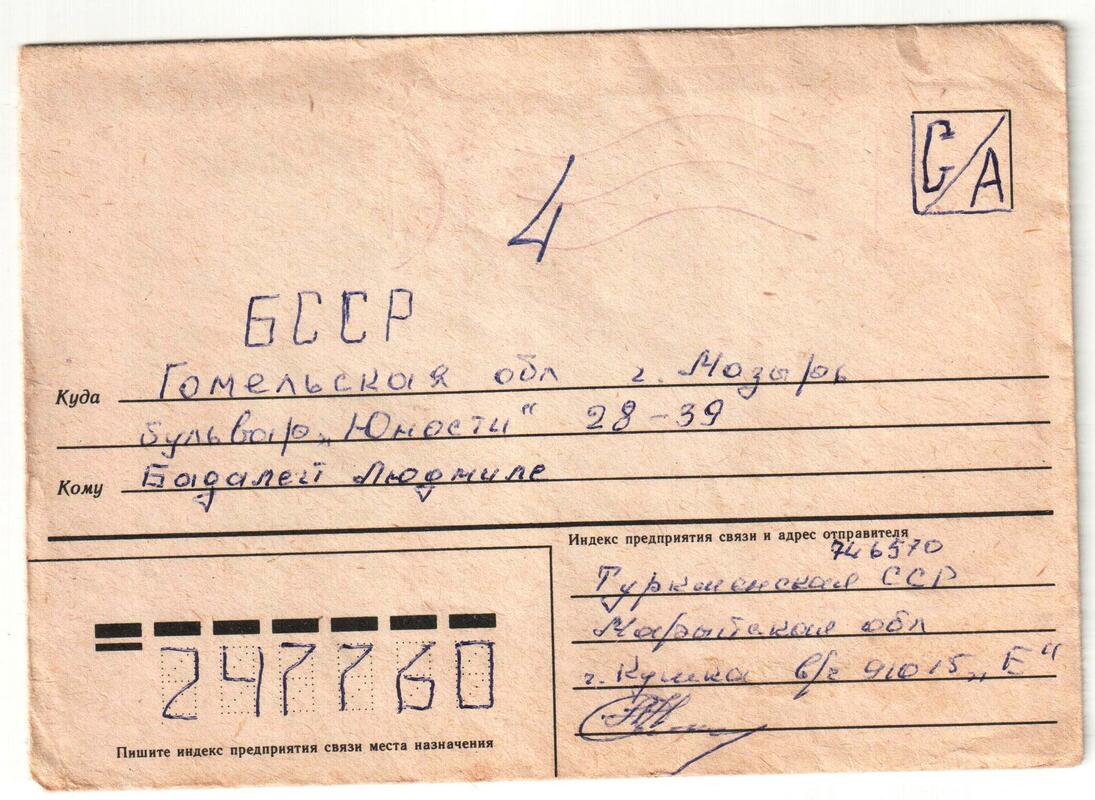 С/А
4
БССР
Куда Гомельская обл г. Мозырь
бульвар „Юности“ 28-39
Кому Бадалей Людмиле
Индекс предприятия связи и адрес отправителя
746570
Туркменская ССР
Марыйская обл
г. Кушка в/ч 91015 „Е“
247760
Пишите индекс предприятия связи места назначения